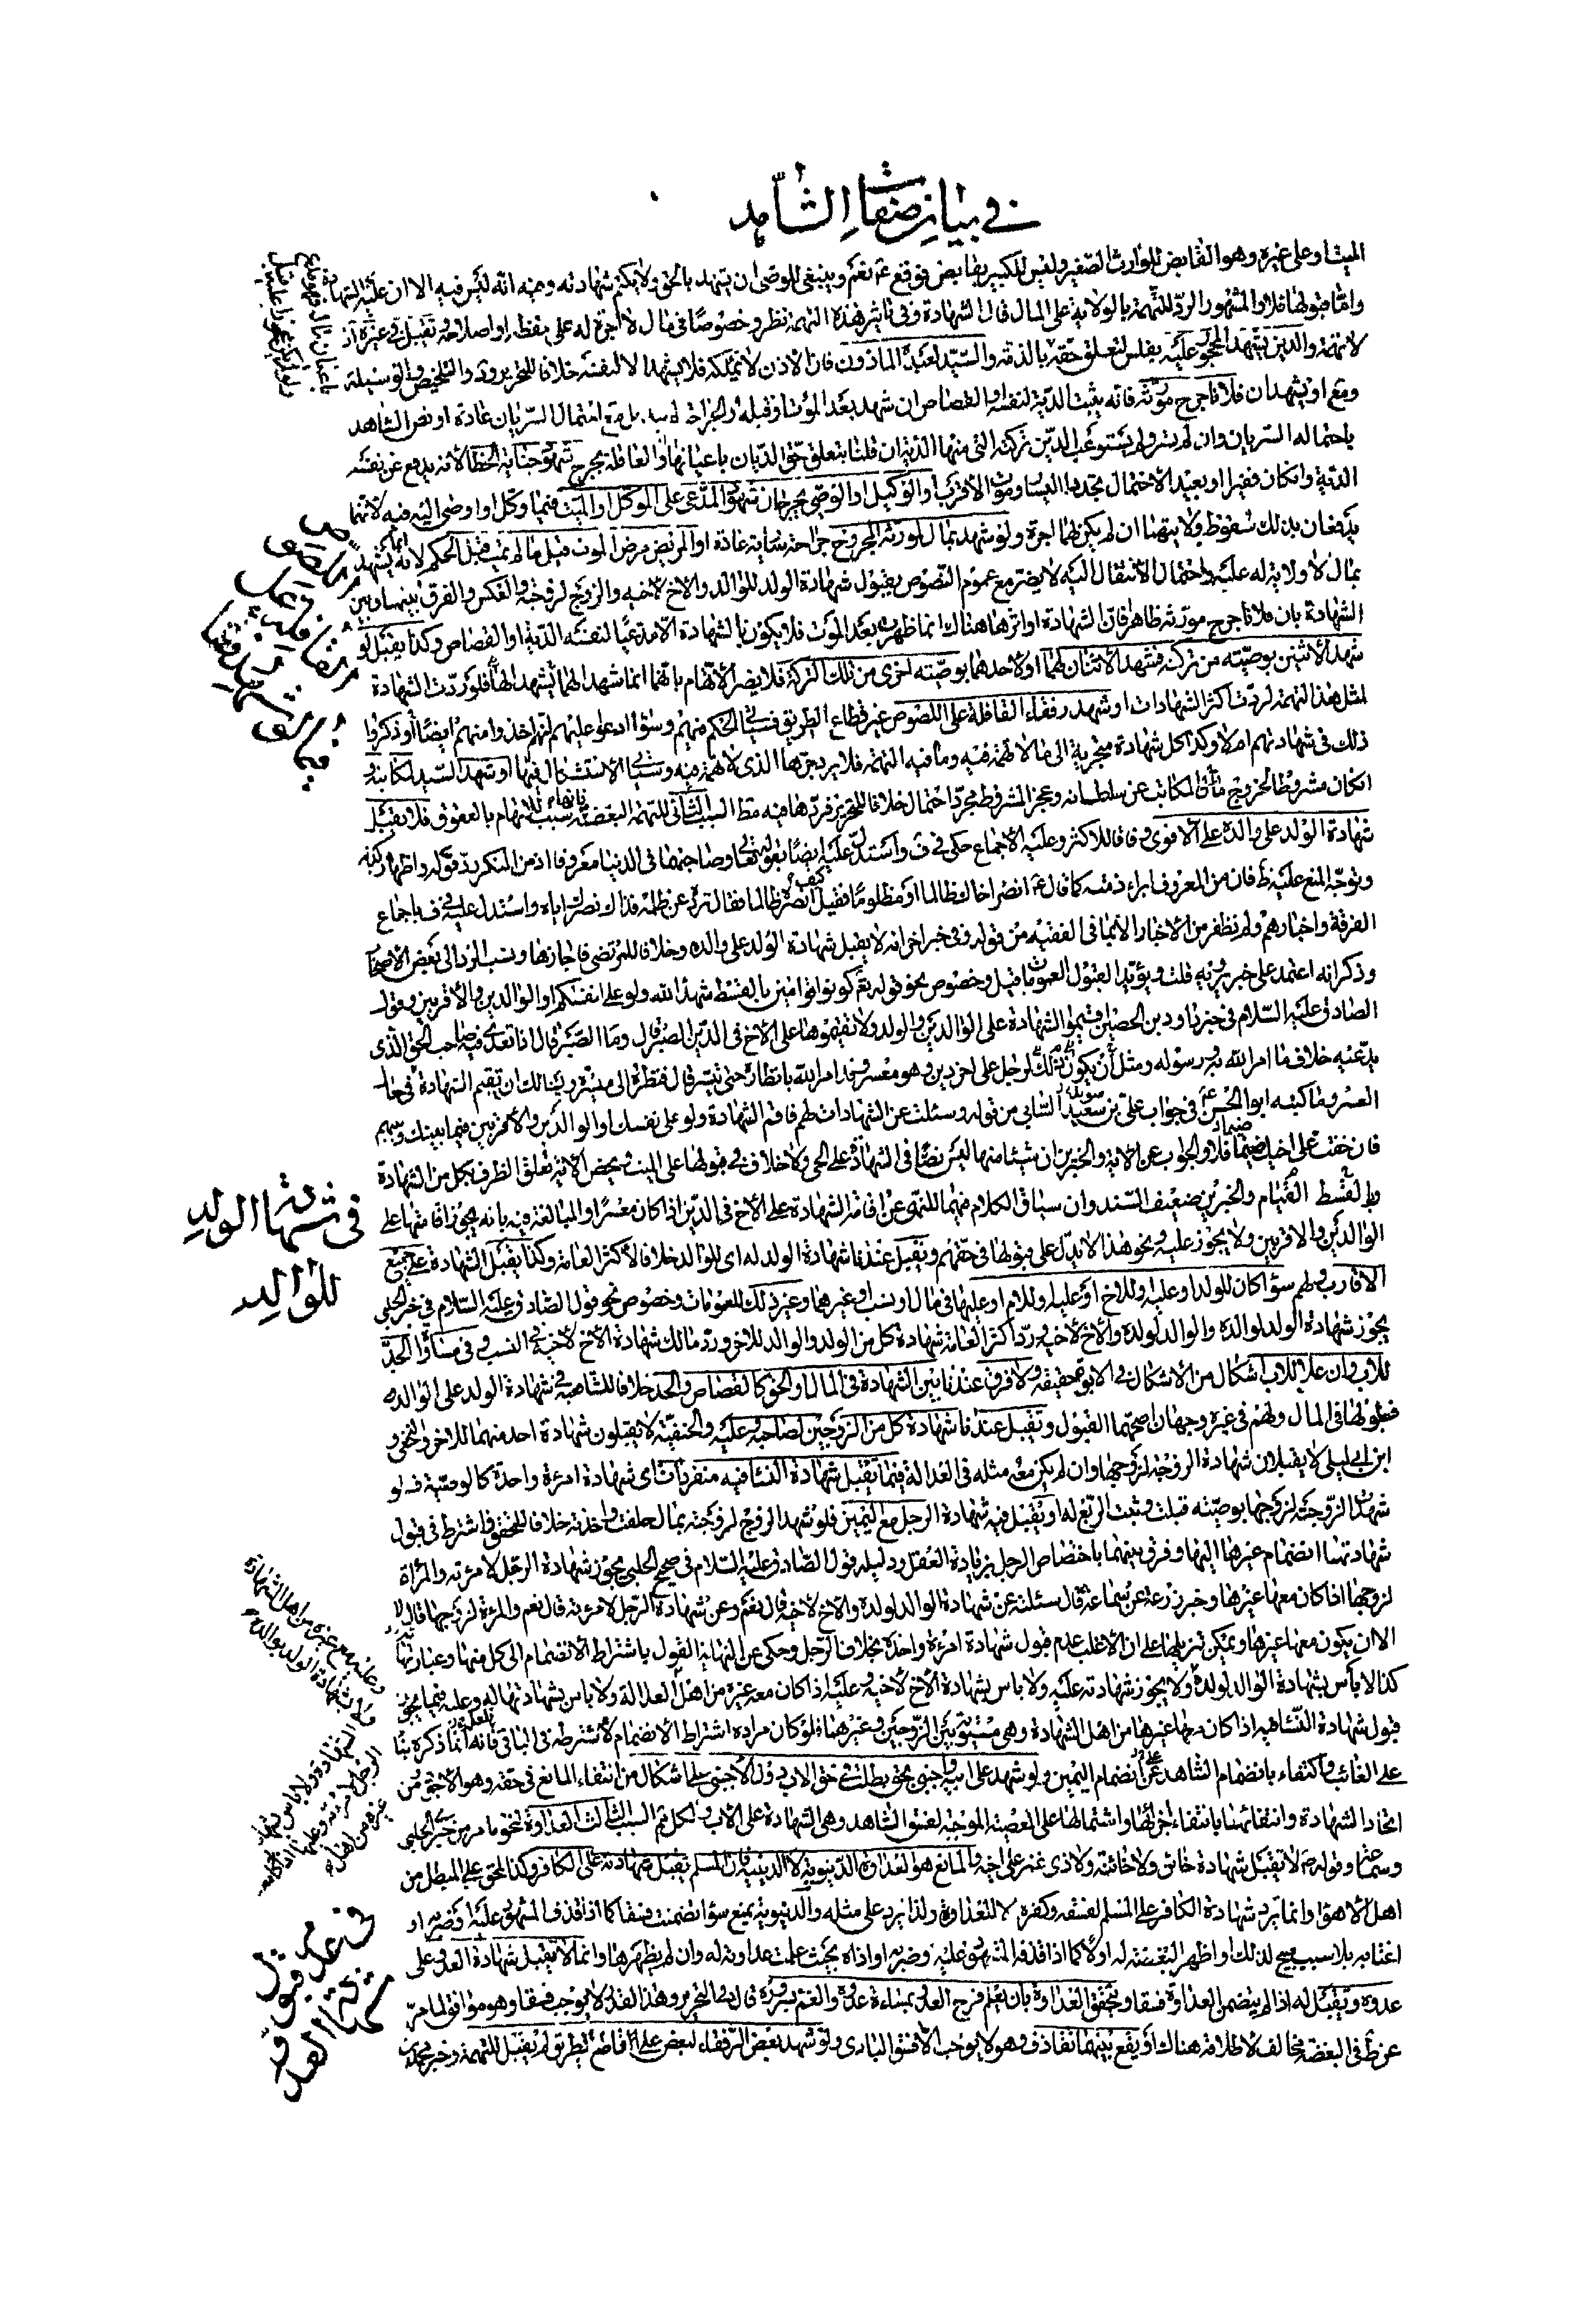 في بيان صفات الشاهد
الميت او على غيره وهو القابض للوارث الصغير وليس للكبير بقابض فوقع ع نعم وينبغي للوصي ان يشهد بالحق ولا يكتم شهادته وجه انه ليس فيه الا ان عليه الشهادة
واما قبولها فلا والمشهور الرد للتهمة بالولاية على المال قال الشهادة وفي تاثير هذه التهمة نظر وخصوصا في مال لا اجرة له على حفظه او اصلاحه وتقبل في غيره اذ
لا تهمة والدين يشهد المحجور عليه بفلس لتعلق حقه بالذمة والسيد لعبده الماذون فان الاذن لا يملكه فلا يشهد الا لنفسه خلافا للتحرير و والتلخيص والوسيلة
ومع او يشهد ان فلانا جرح مورثه فانه يثبت الدية لنفسه او القصاص ان شهد بعد الموت او قبله والجراحة مع احتمال السريان عادة او نص الشاهد
باحتماله السريان وان لم يسر ولم يستوعب الدين تركته التي منها الدية ان قلنا بتعلق حق الديان باعيانها او العاقلة بجرح شهود جناية الخطا لانه يدفع عن نفسه
الدية وان كان فقيرا او بعيد الاحتمال تجدد اليسار وموت الاقرب او الوكيل او الوصي يجرحان شهود المدعى على الموكل او الميت فيما وكل او اوصى اليه فيه لانهما
يدفعان بذلك سقوط ولايتهما ان لم يكن لهما اجرة ولو شهد بمال لمورثه المجروح جراحة سارية عادة او المريض مرض الموت قبل ما لم يمت قبل الحكم لانه انما يشهد
بمال لا ولاية له عليه واحتمال الانتقال اليه لا يضر مع عموم النصوص بقبول شهادة الولد للوالد والاخ لاخيه والزوج لزوجته والعكس والفرق بينها وبين
الشهادة بان فلانا جرح مورثه ظاهر فان الشهادة او اثرها هناك انما ظهرت بعد الموت فلا يكون بالشهادة الا مدعيا لنفسه الدية او القصاص وكذا يقبل لو
شهدا لاثنين بوصيته من تركة فشهد الاثنان لهما او لاحدهما بوصيته اخرى من تلك التركة فلا يضر الاتهام بانهما انما شهدا لهما ليشهدا لهما فلو ردت الشهادة
لمثل هذا التهمة لردت اكثر الشهادات او شهد رفقاء القافلة على اللصوص غير قطاع الطريق فسياتي الحكم فيهم وسواء ادعوا عليهم انهم اخذوا منهم ايضا او ذكروا
ذلك في شهادتهم ام لا وكذا كل شهادة منجرية الى ما لا تهمة فيه وما فيه التهمة فلا يرد جزءها الذي لا تهمة فيه وسياتي الاستشكال فيها او شهد السيد لمكاتبه
ان كان مشروطا لخروج مال المكاتب عن سلطانه وعجز المشروط مجرد احتمال خلافا للتحرير فردها فيه مط السبب الثاني للتهمة البعضية فانها سبب للاتهام بالعقوق فلا تقبل
شهادة الولد على والده على الاقوى وفاقا للاكثر وعليه الاجماع حكي في ف واستدل عليه ايضا بقوله تعالى وصاحبهما في الدنيا معروفا اذ من المنكر رد قوله واظهار كذبه
وتوجه المنع عليه ظ فان من المعروف ابراء ذمته كما قال ع انصر اخاك ظالما او مظلوما فقيل كيف انصره ظالما فقال ترده عن ظلمه فذاك نصرك اياه واستدل عليه في ف باجماع
الفرقة واخبارهم ولم نظفر من الاخبار الا بما في الفقيه من قوله وفي خبر اخر انه لا يقبل شهادة الولد على والده وخلافا للمرتضى فاجازها ونسب الرد الى بعض الاصحاب
وذكر انه اعتمد على خبر يرويه قلت ويؤيد القبول العمومات قبل وخصوص نحو قوله تع كونوا قوامين بالقسط شهداء لله ولو على انفسكم او الوالدين والاقربين وقول
الصادق عليه السلام في خبر داود بن الحصين اقيموا الشهادة على الوالدين والولد ولا تقيموها على الاخ في الدين الضير قال وما الضير قال اذا تعدى فيه صاحب الحق الذي
يدعيه خلاف ما امر الله به ورسوله ومثل ان يكون لرجل على اخر دين وهو معسر وقد امر الله بانظاره حتى تيسر قال فنظرة الى ميسرة ويسئلك ان تقيم الشهادة في حال
العسر وما كتبه ابو الحسن ع في جواب علي بن سويد السابي من قوله وسئلت عن الشهادات لهم فاقم الشهادة ولو على نفسك او الوالدين والاقربين فيما بينك وبينهم
فان خفت على اخيك ضيما فلا والجواب عن الاية والخبرين ان شيئا منها ليس نصا في الشهادة على الحي ولا خلاف في قبولها على الميت ويخص الاية تعلق الظرف بكل من الشهادة
بالقسط القيام والخبرين ضعف السند وان سياق الكلام فيهما للنهي عن اقامة الشهادة على الاخ في الدين اذا كان معسرا والمبالغة فيه بانه يجوز اقامتها على
الوالدين والاقربين ولا يجوز عليه ونحو هذا لا يدل على قبولها في حقهم وتقبل عندنا شهادة الولد له اي للوالد خلافا لاكثر العامة وكذا يقبل الشهادة على جميع
الاقارب ولهم سواء كان للولد او عليه وللاخ او عليه وللام او عليها في مال او نسب او غيرهما وغير ذلك للعمومات وخصوص نحو قول الصادق عليه السلام في خبر الحلبي
يجوز شهادة الولد لوالده والوالد لولده والاخ لاخيه ورد اكثر العامة شهادة كل من الولد والوالد للاخر ورد مالك شهادة الاخ لاخيه في النسب وفي مساواة الجد
للاب وان علا للاب اشكال من الاشكال في الابوة حقيقة ولا فرق عندنا بين الشهادة في المال او الحق كالقصاص والحد خلافا للشافعية في شهادة الولد على الوالد
فقبلوها في المال ولهم في غيره وجهان اصحهما القبول وتقبل عندنا شهادة كل من الزوجين لصاحبه وعليه والحنفية لا يقبلون شهادة احد منهما للاخر والنخعي و
ابن ابي ليلى لا يقبلان شهادة الزوجة لزوجها وان لم يكن معه مثله في العدالة فيما تقبل شهادة النساء فيه منفردات اي شهادة امرءة واحدة كالوصية فلو
شهدت الزوجة لزوجها بوصيته قبلت وثبت الربع له او يقبل فيه شهادة الرجل مع اليمين فلو شهد الزوج لزوجته بمال حلفت واخذته خلافا للمحقق فاشترط في قبول
شهادتها انضمام غيرها اليها وفرق بينهما باختصاص الرجل بزيادة العقل ودليله قول الصادق عليه السلام في صحيح الحلبي يجوز شهادة الرجل لامرءته والمراة
لزوجها اذا كان معها غيرها وخبر زرعة عن سماعة قال سئلته عن شهادة الوالد لولده والاخ لاخيه قال نعم وعن شهادة الرجل لامرءته قال نعم والمرءة لزوجها قال لا
الا ان يكون معها غيرها ويمكن تنزيلها على ان الاغلب عدم قبول شهادة امرءة واحدة بخلاف الرجل وحكي عن النهاية القول باشتراط الانضمام الى كل منهما وعبارتها
كذا لا باس بشهادة الوالد لولده ولا يجوز شهادته عليه ولا باس بشهادة الاخ لاخيه وعليه اذا كان معه غيره من اهل العدالة ولا باس بشهادتها له وعليه فيما يجوز
قبول شهادة النساء فيه اذا كان معها غيرها من اهل الشهادة وهي مسوية بين الزوجين وغيرهما فلو كان مراده اشتراط الانضمام لاشترطه في الباقي فانه انما ذكره بناء
على الغائب واكتفاء بانضمام الشاهد عن انضمام اليمين ولو شهد على ابيه واجنبي بحق بطلت في حق الاب دون الاجنبي على اشكال من انتفاء المانع في حقه وهو الاجنبي ومن
اتحاد الشهادة وانتفائها بانتفاء جزئها واشتمالها على المعصية الموجبة لفسق الشاهد وهي الشهادة على الاب ولكل ثم السبب الثالث العداوة لنحو ما مر من خبري الحلبي
وسماعة وقوله ص لا تقبل شهادة خائن ولا خائنة ولا ذي غمر على اخيه والمانع هو العداوة الدنيوية لا الدينية فان المسلم تقبل شهادته على الكافر وكذا المحق على المبطل من
اهل الاهواء وانما ترد شهادة الكافر على المسلم لفسقه وكفره لا للعداوة ولذا ترد على مثله والدنيوية يمنع سواء تضمنت فسقا كما اذا قذف المشهود عليه او ضربه او
اغتابه بلا سبب مبيح لذلك او اظهر البغضة له او لا كما اذا قذفه المشهود عليه وضربه او اذاه بحيث علمت عداوته له وان لم يظهرها وانما لا يقبل شهادة العدو على
عدوه وتقبل له اذا لم يتضمن العداوة فسقا وتتحقق العداوة بان يعلم فرح العدو بمساءة عدوه والغم بسروره قال في التحرير وهذا القدر لا يوجب فسقا وهو موافق لما مر
عن ظ في البغضة مخالف لاطلاقه هناك او يقع بينهما تقاذف وهو لا يوجب الا فسق البادي ولو شهد بعض الرفقاء لبعض على قاطع الطريق لم يقبل للتهمة وخبر محمد بن
في شهادة الولد
للوالد
في عدم قبول
شهادة العدو